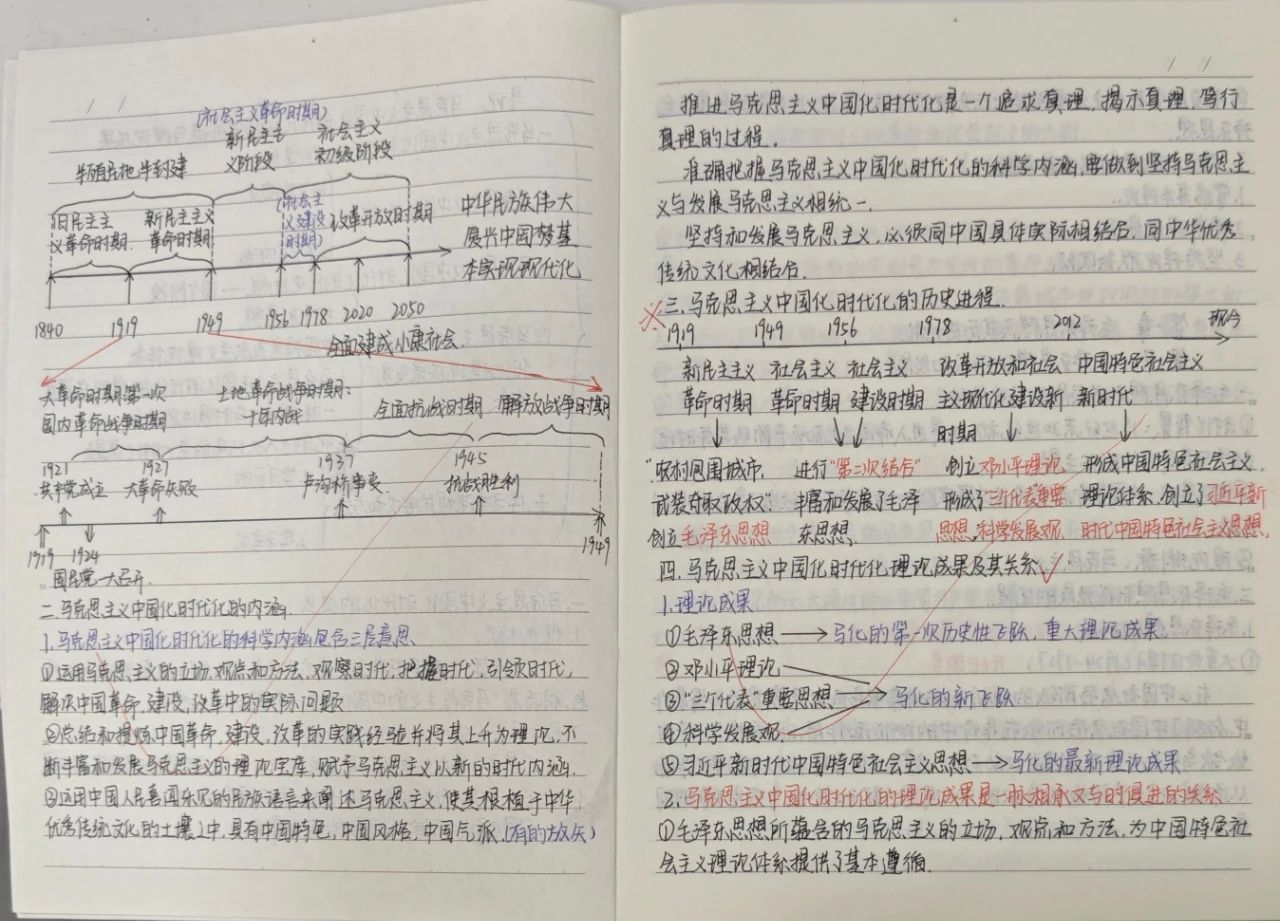 (社会主义革命时期)
新民主主 社会主义
义阶段 初级阶段
半殖民地半封建
旧民主主 新民主主义 (社会主 改革开放时期 中华民族伟大
义革命时期 革命时期 义建设 复兴中国梦基
时期) 本实现现代化
1840 1919 1949 1956 1978 2020 2050
全面建成小康社会
大革命时期第一次 土地革命战争时期: 全面抗战时期 解放战争时期
国内革命战争时期 十年内战
1921 1927 1937 1945
共产党成立 大革命失败 卢沟桥事变 抗战胜利
1919 1924 1949
国民党一大召开.
二.马克思主义中国化时代化的内涵.
1.马克思主义中国化时代化的科学内涵包含三层意思.
①运用马克思主义的立场.观点和方法.观察时代,把握时代,引领时代,
解决中国革命.建设,改革中的实际问题
②总结和提炼中国革命,建设,改革的实践经验并将其上升为理论,不
断丰富和发展马克思主义的理论宝库,赋予马克思主义以新的时代内涵.
③运用中国人民喜闻乐见的民族语言来阐述马克思主义,使其根植于中华
优秀传统文化的土壤之中,具有中国特色,中国风格,中国气派.(有的放矢)
推进马克思主义中国化时代化是一个追求真理.揭示真理.笃行
真理的过程.
准确把握马克思主义中国化时代化的科学内涵,要做到坚持马克思主
义与发展马克思主义相统一.
坚持和发展马克思主义,必须同中国具体实际相结合.同中华优秀
传统文化相结合.
※三.马克思主义中国化时代化的历史进程.
1919 1949 1956 1978 2012 现今
新民主主义 社会主义 社会主义 改革开放和社会 中国特色社会主义
革命时期 革命时期 建设时期 主义现代化建设新 新时代
时期
"农村包围城市. 进行"第二次结合" 创立邓小平理论, 形成中国特色社会主义
武装夺取政权". 丰富和发展了毛泽 形成了"三个代表"重要 理论体系,创立了习近平新
创立毛泽东思想 东思想. 思想,科学发展观 时代中国特色社会主义思想.
四.马克思主义中国化时代化理论成果及其关系.
1.理论成果
①毛泽东思想→马化的第一次历史性飞跃,重大理论成果.
②邓小平理论
③"三个代表"重要思想 马化的新飞跃
④科学发展观.
⑤习近平新时代中国特色社会主义思想→马化的最新理论成果
2.马克思主义中国化时代化的理论成果是一脉相承又与时俱进的关系
①毛泽东思想所蕴含的马克思主义的立场,观点和方法,为中国特色社
会主义理论体系提供了基本遵循.